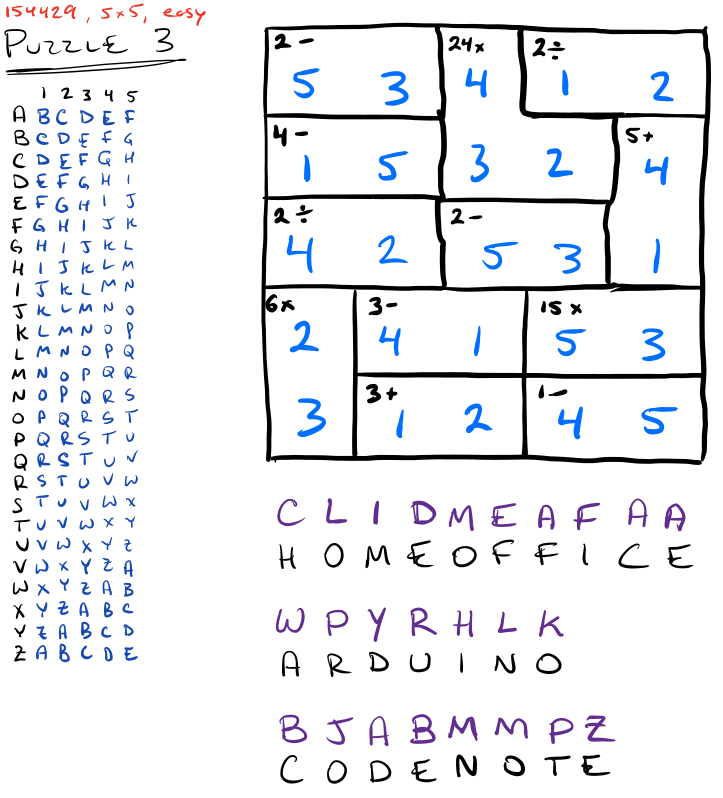 154429, 5x5, easy
PUZZLE 3
1 2 3 4 5
A B C D E F
B C D E F G
C D E F G H
D E F G H I
E F G H I J
F G H I J K
G H I J K L
H I J K L M
I J K L M N
J K L M N O
K L M N O P
L M N O P Q
M N O P Q R
N O P Q R S
O P Q R S T
P Q R S T U
Q R S T U V
R S T U V W
S T U V W X
T U V W X Y
U V W X Y Z
V W X Y Z A
W X Y Z A B
X Y Z A B C
Y Z A B C D
Z A B C D E
2- 24x 2÷
5 3 4 1 2
4- 5+
1 5 3 2 4
2÷ 2-
4 2 5 3 1
6x 3- 15x
2 4 1 5 3
3+ 1-
3 1 2 4 5
C L I D M E A F A A
H O M E O F F I C E
W P Y R H L K
A R D U I N O
B J A B M M P Z
C O D E N O T E